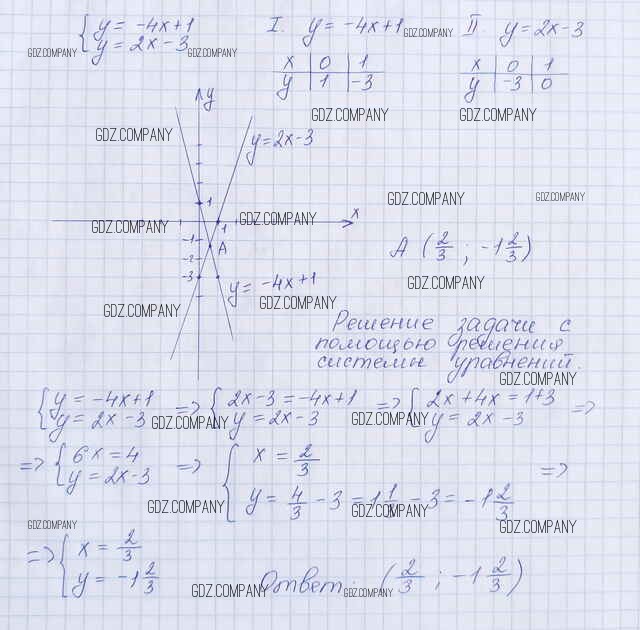 { y = -4x+1
y = 2x-3
GDZ.COMPANY GDZ.COMPANY
I. y = -4x+1 GDZ.COMPANY
x | 0 | 1
y | 1 | -3
II. y = 2x-3
x | 0 | 1
y | -3 | 0
GDZ.COMPANY GDZ.COMPANY
y
GDZ.COMPANY
y = 2x-3
GDZ.COMPANY GDZ.COMPANY
1
x
GDZ.COMPANY GDZ.COMPANY
1
-1
A
-2
-3
A (2/3 ; -1 2/3)
GDZ.COMPANY
y = -4x+1
GDZ.COMPANY
GDZ.COMPANY
Решение задачи с
помощью решения
системы уравнений.
GDZ.COMPANY
{ y = -4x+1 => { 2x-3 = -4x+1 => { 2x+4x = 1+3 =>
y = 2x-3 GDZ.COMPANY y = 2x-3 GDZ.COMPANY y = 2x-3
=> { 6x = 4 => { x = 2/3 =>
y = 2x-3 y = 4/3 - 3 = 1 1/3 - 3 = -1 2/3
GDZ.COMPANY GDZ.COMPANY
GDZ.COMPANY GDZ.COMPANY
=> { x = 2/3
y = -1 2/3
GDZ.COMPANY Ответ: GDZ.COMPANY (2/3 ; -1 2/3)